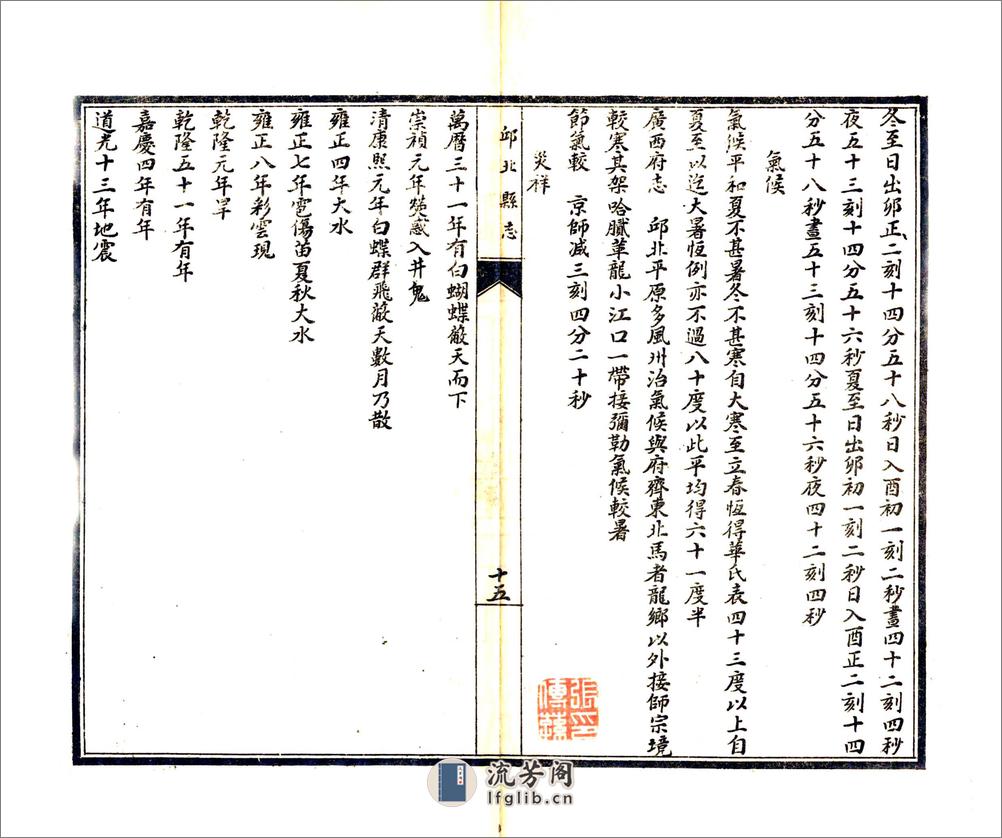 冬至日出卯正二刻十四分五十八秒日入酉初一刻二秒晝四十二刻四秒
夜五十三刻十四分五十六秒夏至日出卯初一刻二秒日入酉正二刻十四
分五十八秒晝五十三刻十四分五十六秒夜四十二刻四秒
氣候
氣候平和夏不甚暑冬不甚寒自大寒至立春恆得華氏表四十三度以上自
夏至以迄大暑恆例亦不過八十度以此平均得六十一度半
廣西府志 邱北平原多風州治氣候與府齊東北馬者龍鄉以外接師宗境
較寒其架哈膩革龍小江口一帶接彌勒氣候較暑
節氣較 京師減三刻四分二十秒
災祥
邱北縣志
十五
萬曆三十一年有白蝴蝶蔽天而下
崇禎元年熒惑入井鬼
清康熙元年白蝶群飛蔽天數月乃散
雍正四年大水
雍正七年雹傷苗夏秋大水
雍正八年彩雲現
乾隆元年旱
乾隆五十一年有年
嘉慶四年有年
道光十三年地震
流芳阁
lfglib.cn